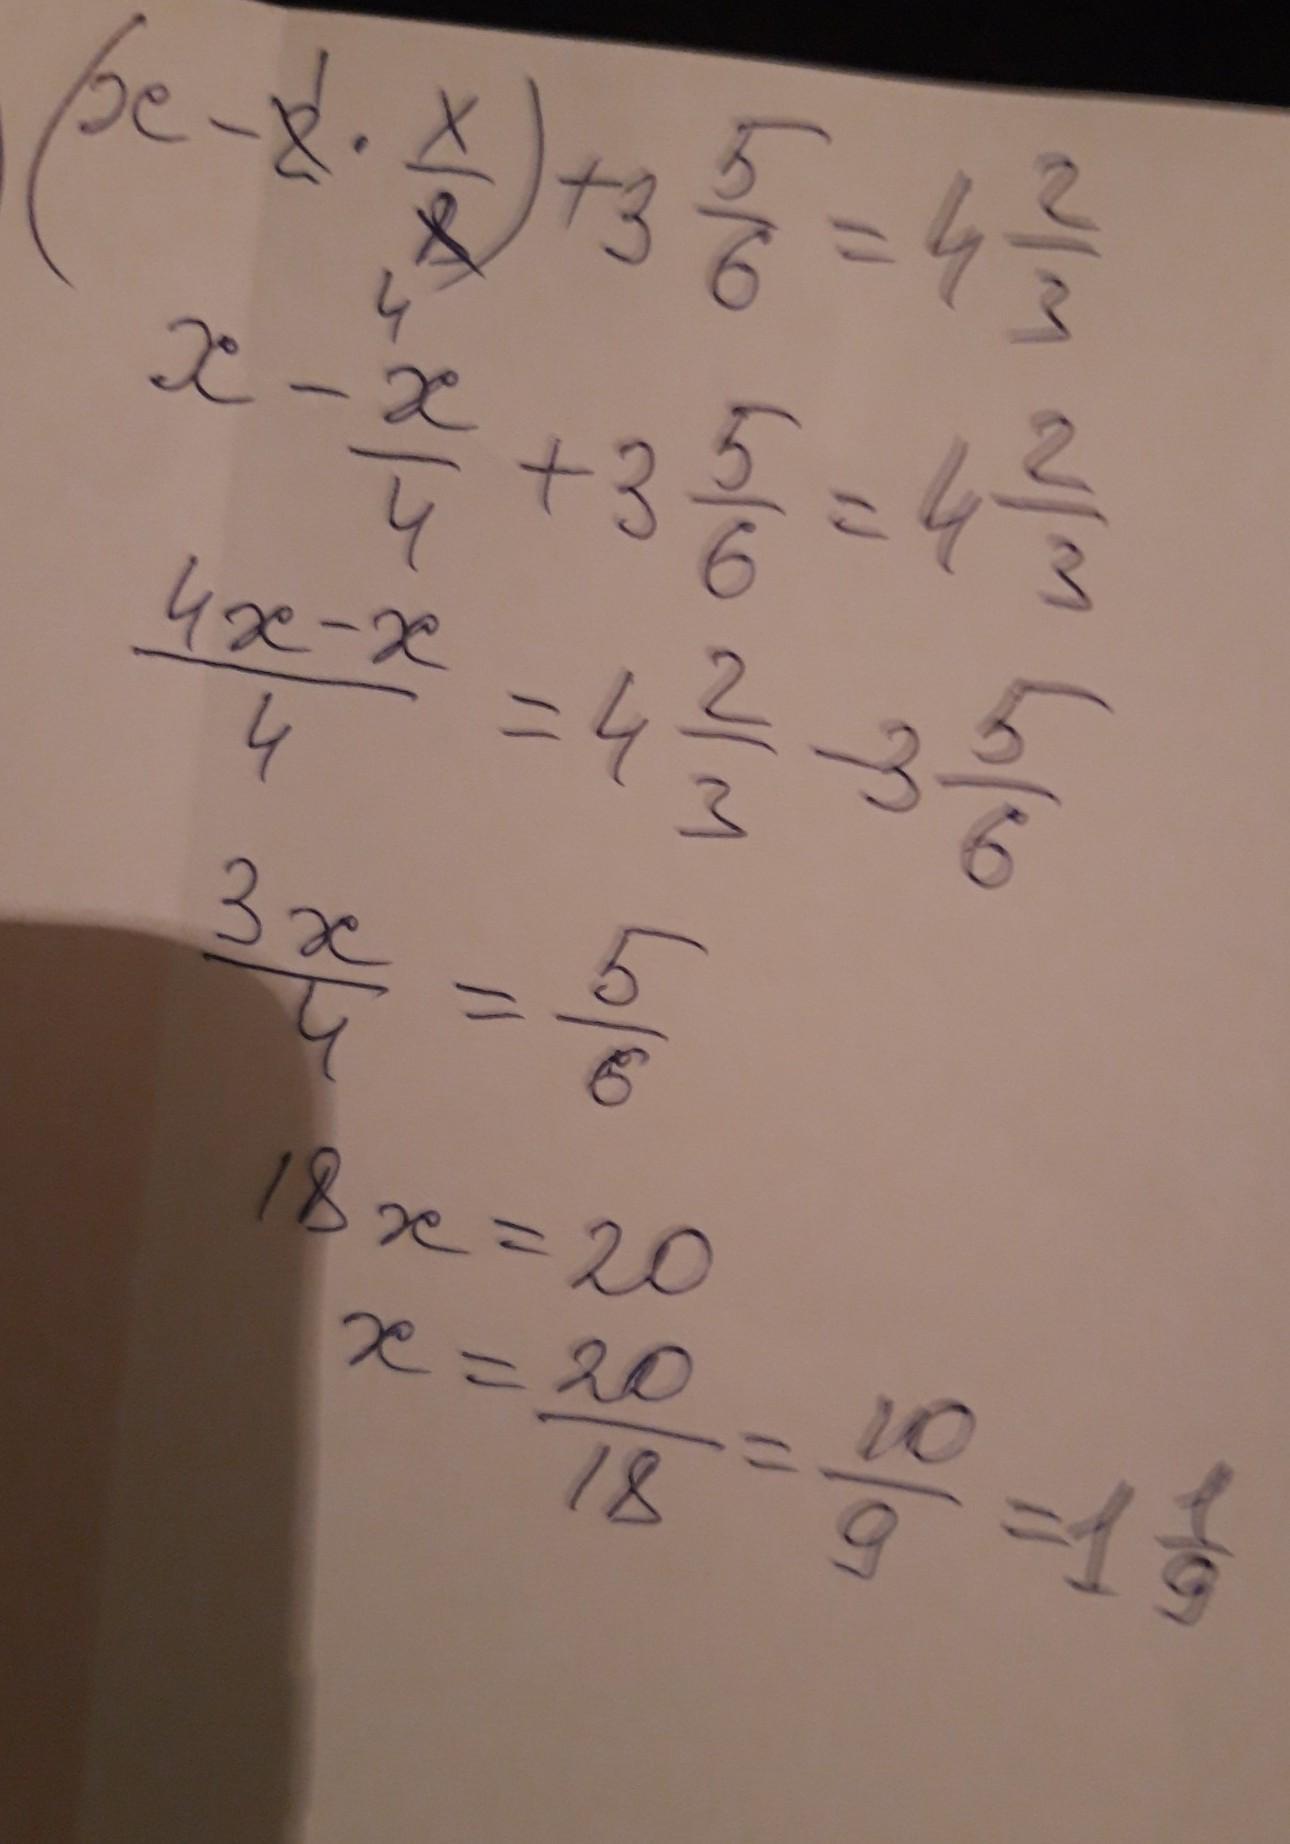 (x - 2̸ 1 · x/8̸ 4) + 3 5/6 = 4 2/3
x - x/4 + 3 5/6 = 4 2/3
(4x - x)/4 = 4 2/3 - 3 5/6
3x/4 = 5/6
18x = 20
x = 20/18 = 10/9 = 1 1/9